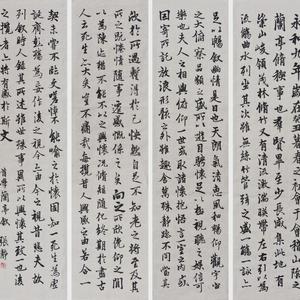 會稽山陰之
蘭亭脩禊事也群賢畢至少長咸集此地有
崇山峻領茂林脩竹又有清流激湍映帶左右引以為
流觴曲水列坐其次雖無絲竹管弦之盛一觴一詠上
足以暢敘幽情是日也天朗氣清惠風和暢仰觀宇宙
之大俯察品類之盛所以遊目騁懷足以極視聽之娛信可
樂也夫人之相與俯仰一世或取諸懷抱悟言一室之內或
因寄所託放浪形骸之外雖趣舍萬殊靜躁不同當其
欣於所遇暫得於己快然自足不知老之將至及其
所之既惓情隨事遷感慨係之矣向之所欣俛仰之間
以為陳迹猶不能不以之興懷況脩短隨化終期於盡古
人云死生亦大矣豈不痛哉每攬昔人興感之由若合一
契未嘗不臨文嗟悼不能喻之於懷固知一死生為虛
誕齊彭殤為妄作後之視今亦由今之視昔悲夫故
列敘時人錄其所述雖世殊事異所以興懷其致一也後
之攬者亦將有感於斯文
蘭亭敘 張靜